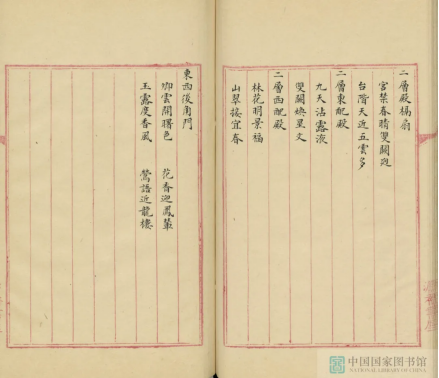 二層殿槅扇
宮禁春晴雙闕迥
台階天近五雲多
二層東配殿
九天沾露液
雙闕煥星文
二層西配殿
林花明景福
山翠接宜春
東西後角門
卿雲開曙色 花香迎鳳輦
玉露度春風 鶯語近龍樓
中国国家图书馆
NATIONAL LIBRARY OF CHINA